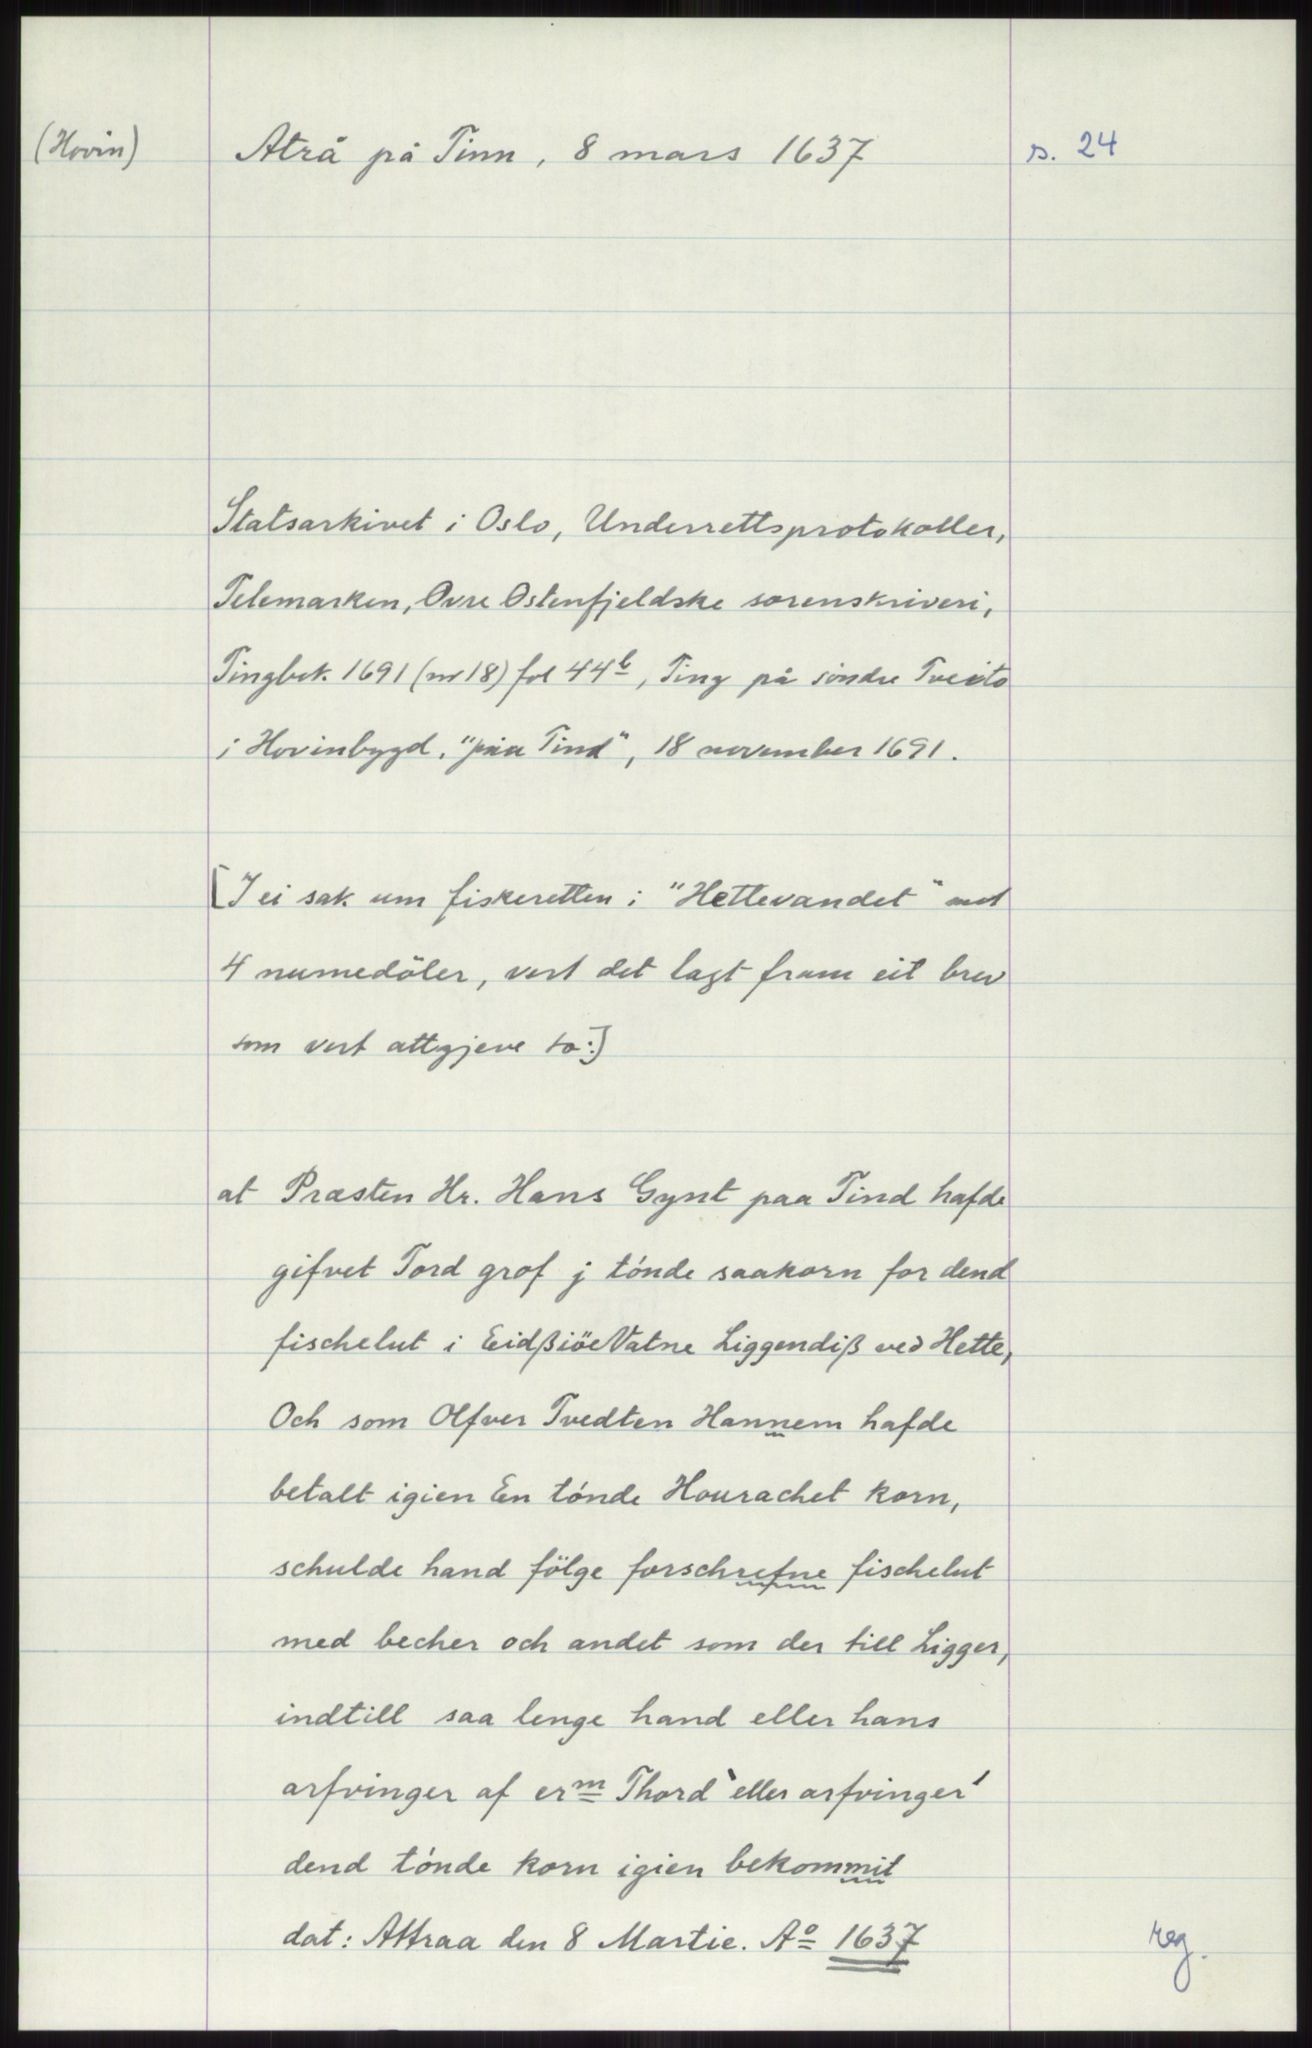 (Hovin)
Atrå på Tinn, 8 mars 1637
s. 24
Statsarkivet i Oslo, Underrettsprotokoller,
Telemarken, Øvre Østenfjeldske sorenskriveri,
Tingbok 1691 (nr 18) fol 44b, Ting på söndre Tveito
i Hovinbygd, "paa Tind", 18 november 1691.
[I ei sak um fiskeretten i "Hettevandet" mot
4 numedöler, vert det lagt fram eit brev
som vert attgjeve so:]
at Præsten Hr. Hans Gynt paa Tind hafde
gifvet Tord grof j tónde saakorn for dend
fischelut i Eidßiöe Vatne Liggendiß ved Hette,
Och som Olfver Tvedten Hannem hafde
betalt igien En tónde Hourachet korn,
schulde hand fölge forschrefne fischelut
med becher och andet som der till Ligger,
indtill saa lenge hand eller hans
arfvinger af erm Thord `eller arfvinger´
dend tónde korn igien bekommit
dat: Attraa den 8 Martie. Ao 1637
reg.